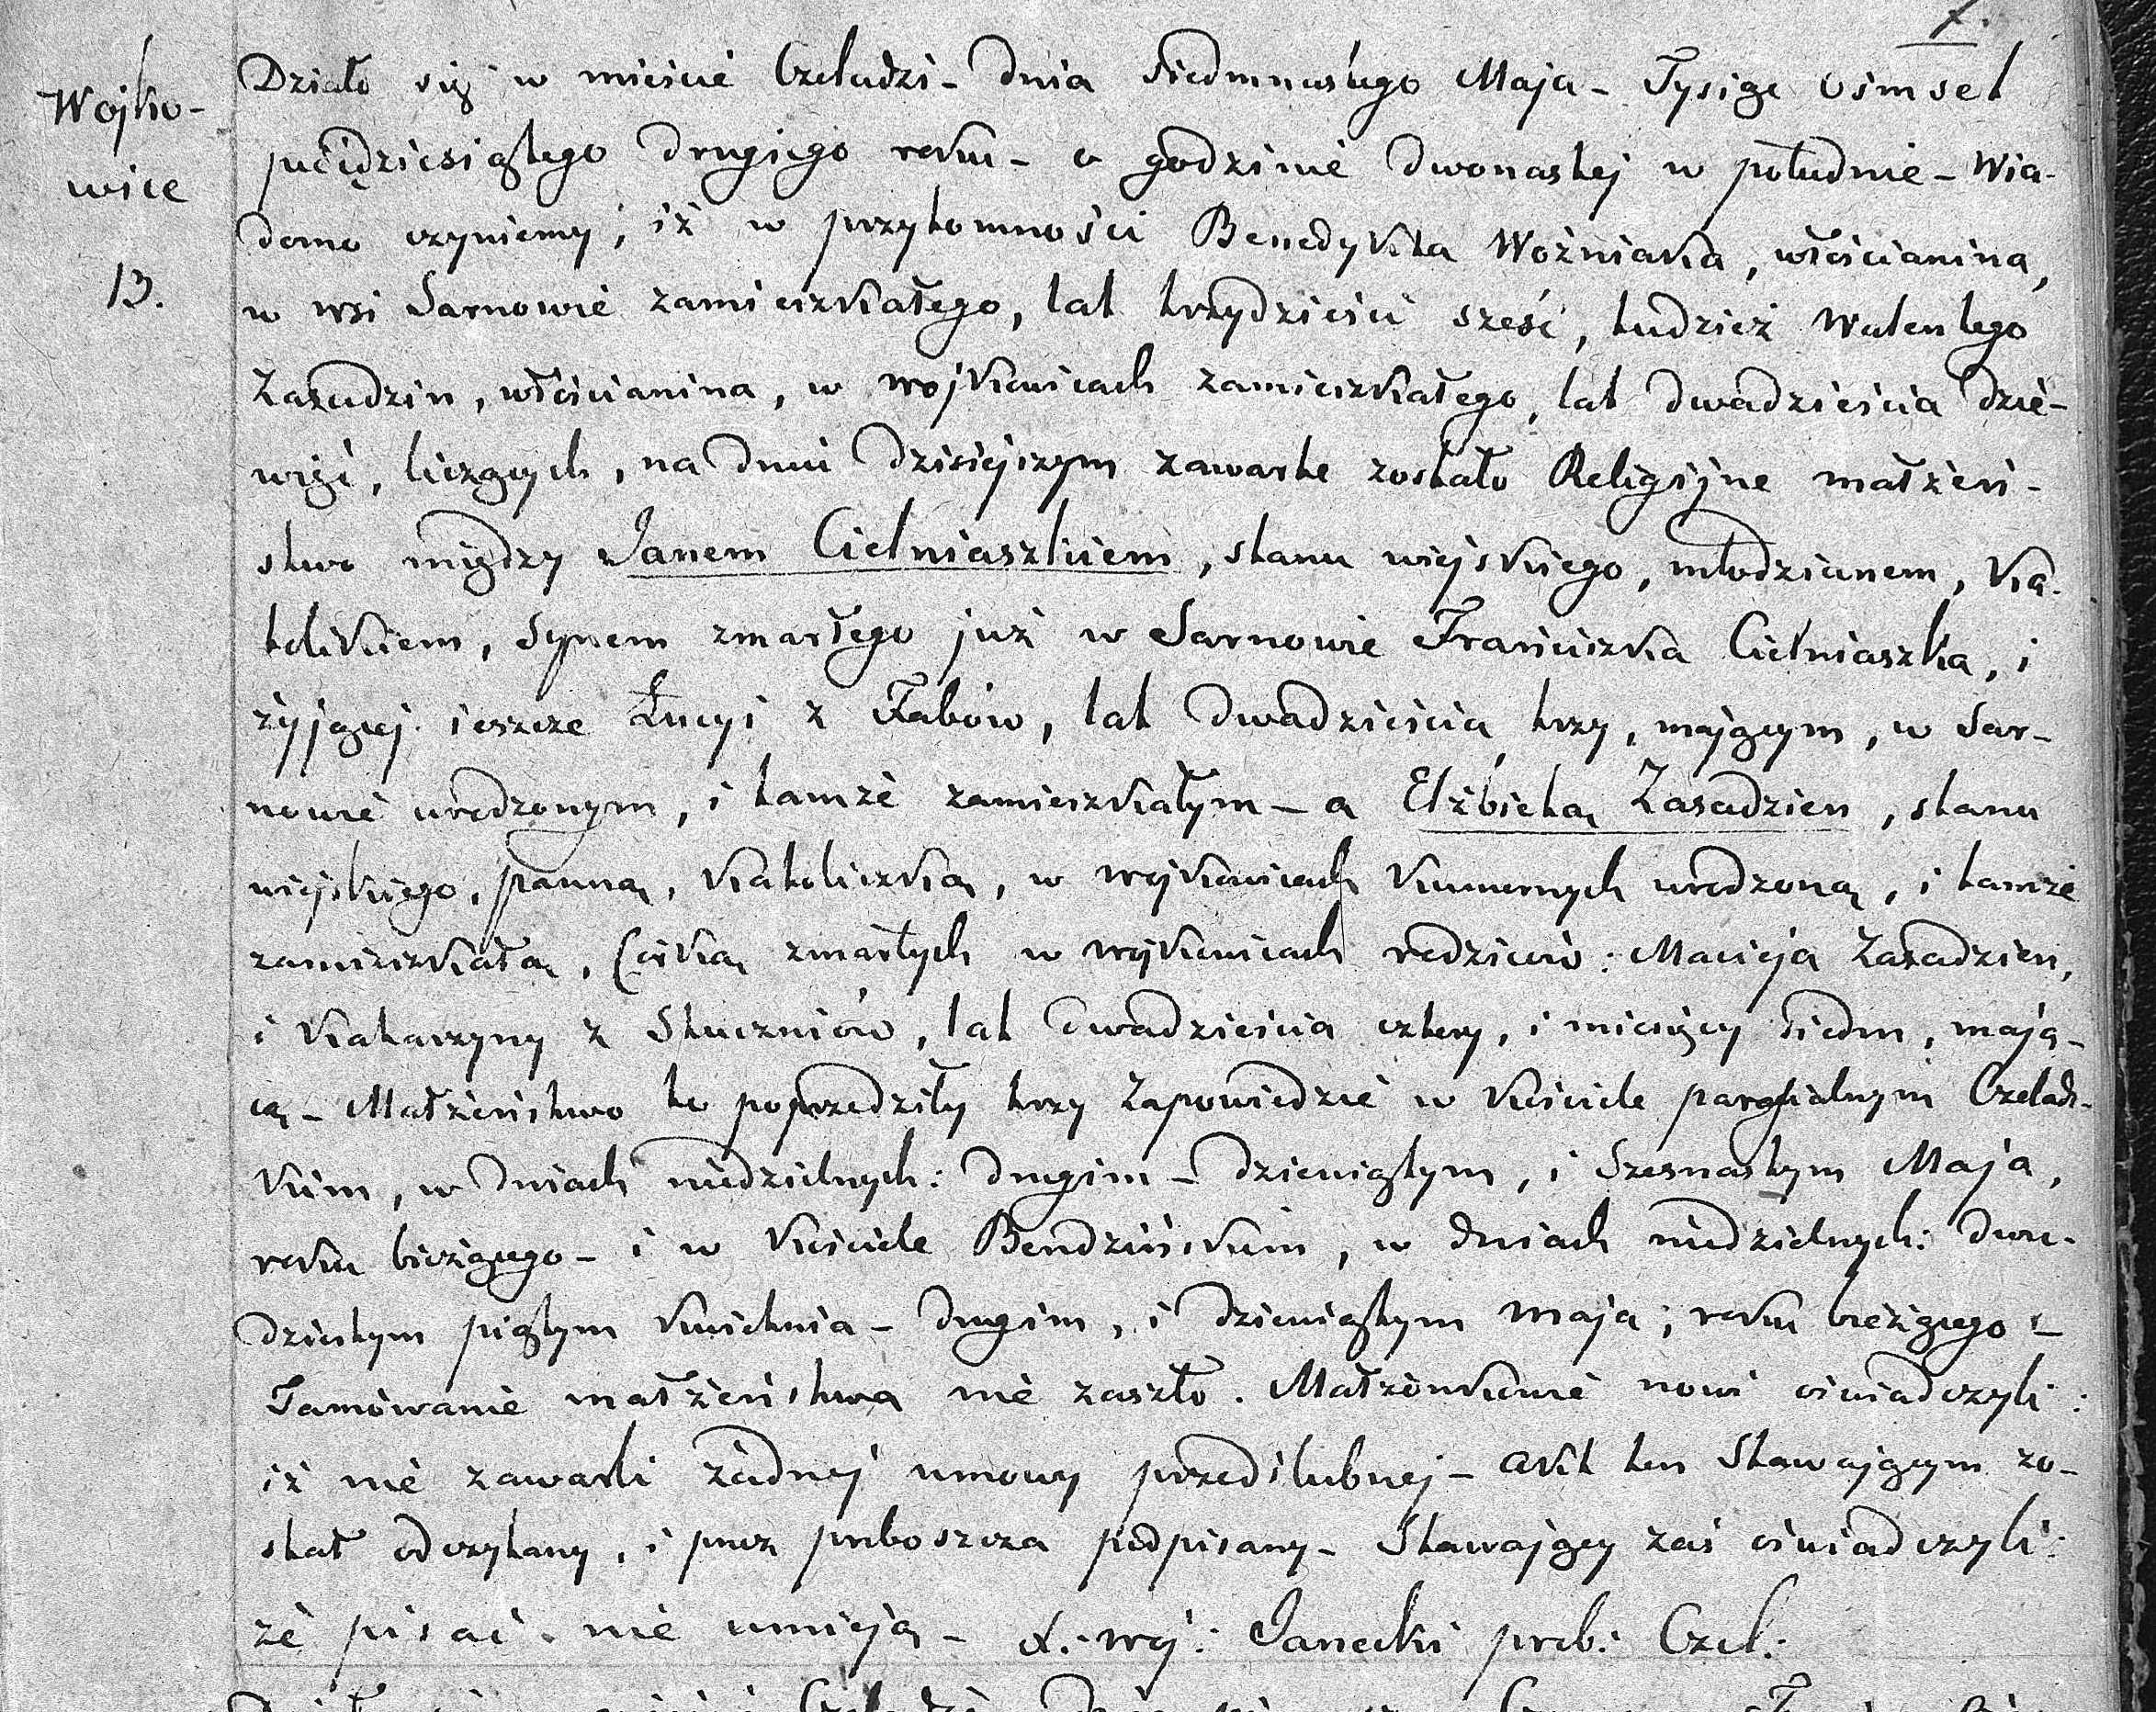 7.
Wojko-
wice
13.
Działo się w mieście Czeladzi - dnia siedmnastego Maja - Tysiąc osmset
pięćdziesiątego drugiego roku - o godzinie dwonastej w południe - Wia-
domo czyniemy, iż w przytomności Benedykta Woźniaka, włościanina,
w wsi Sarnowie zamieszkałego, lat trzydzieści sześć, tudzież Walentego
Zasadzin, włościanina, w Wojkowicach zamieszkałego, lat dwadzieścia dzie-
więć, liczących, na dniu dzisiejszym zawarte zostało Religijne małżeń-
stwo między Janem Cielniaszkiem, stanu wiejskiego, młodzianem, Ka-
tolikiem, Synem zmarłego już w Sarnowie Franciszka Cielniaszka, i
żyjącej ieszcze Łucyi z Kabów, lat dwadzieścia trzy, mającym, w Sar-
nowie urodzonym, i tamże zamieszkałym - a Elżbietą Zasadzien, stanu
wiejskiego, panną, Katoliczką, w Wojkowicach Komornych urodzoną, i tamże
zamieszkałą, Córką zmarłych w Wojkowicach rodziców: Macieja Zasadzien,
i Katarzyny z Stuczniów, lat dwadzieścia cztery, i miesięcy siedm, mają-
cą - Małżeństwo to poprzedziły trzy Zapowiedzie w Kościele parafialnym Czeladz-
kim, w dniach niedzielnych: drugim - dziewiątym, i Szesnastym Maja,
roku bieżącego - i w Kościele Bendzińskim, w dniach niedzielnych: dwu-
dziestym piątym Kwietnia - drugim, i dziewiątym maja, roku bieżącego -
Tamowanie małżeństwa nie zaszło. Małżonkowie nowi oświadczyli:
iż nie zawarli żadnej umowy przedślubnej - Akt ten Stawającym zo-
stał odczytany, i przez proboszcza podpisany - Stawający zaś oświadczyli:
że pisać nie umieją - X. woj: Janecki prob: Czel: